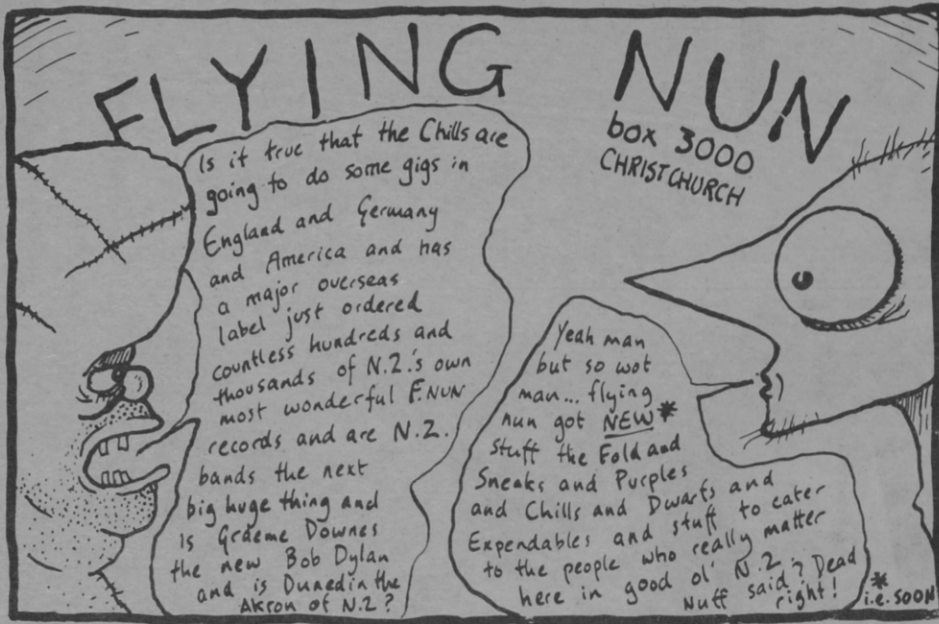 FLYING NUN
box 3000
CHRISTCHURCH
Is it true that the Chills are
going to do some gigs in
England and Germany
and America and has
a major overseas
label just ordered
countless hundreds and
thousands of N.Z.'s own
most wonderful F.NUN
records and are N.Z.
bands the next
big huge thing and
is Graeme Downes
the new Bob Dylan
and is Dunedin the
Akron of N.Z?
Yeah man
but so wot
man... flying
nun got NEW*
stuff the Fold and
Sneaks and Purples
and Chills and Dwarfs and
Expendables and stuff to cater
to the people who really matter
here in good ol' N.Z
Nuff said? Dead
right!
* i.e. SOON